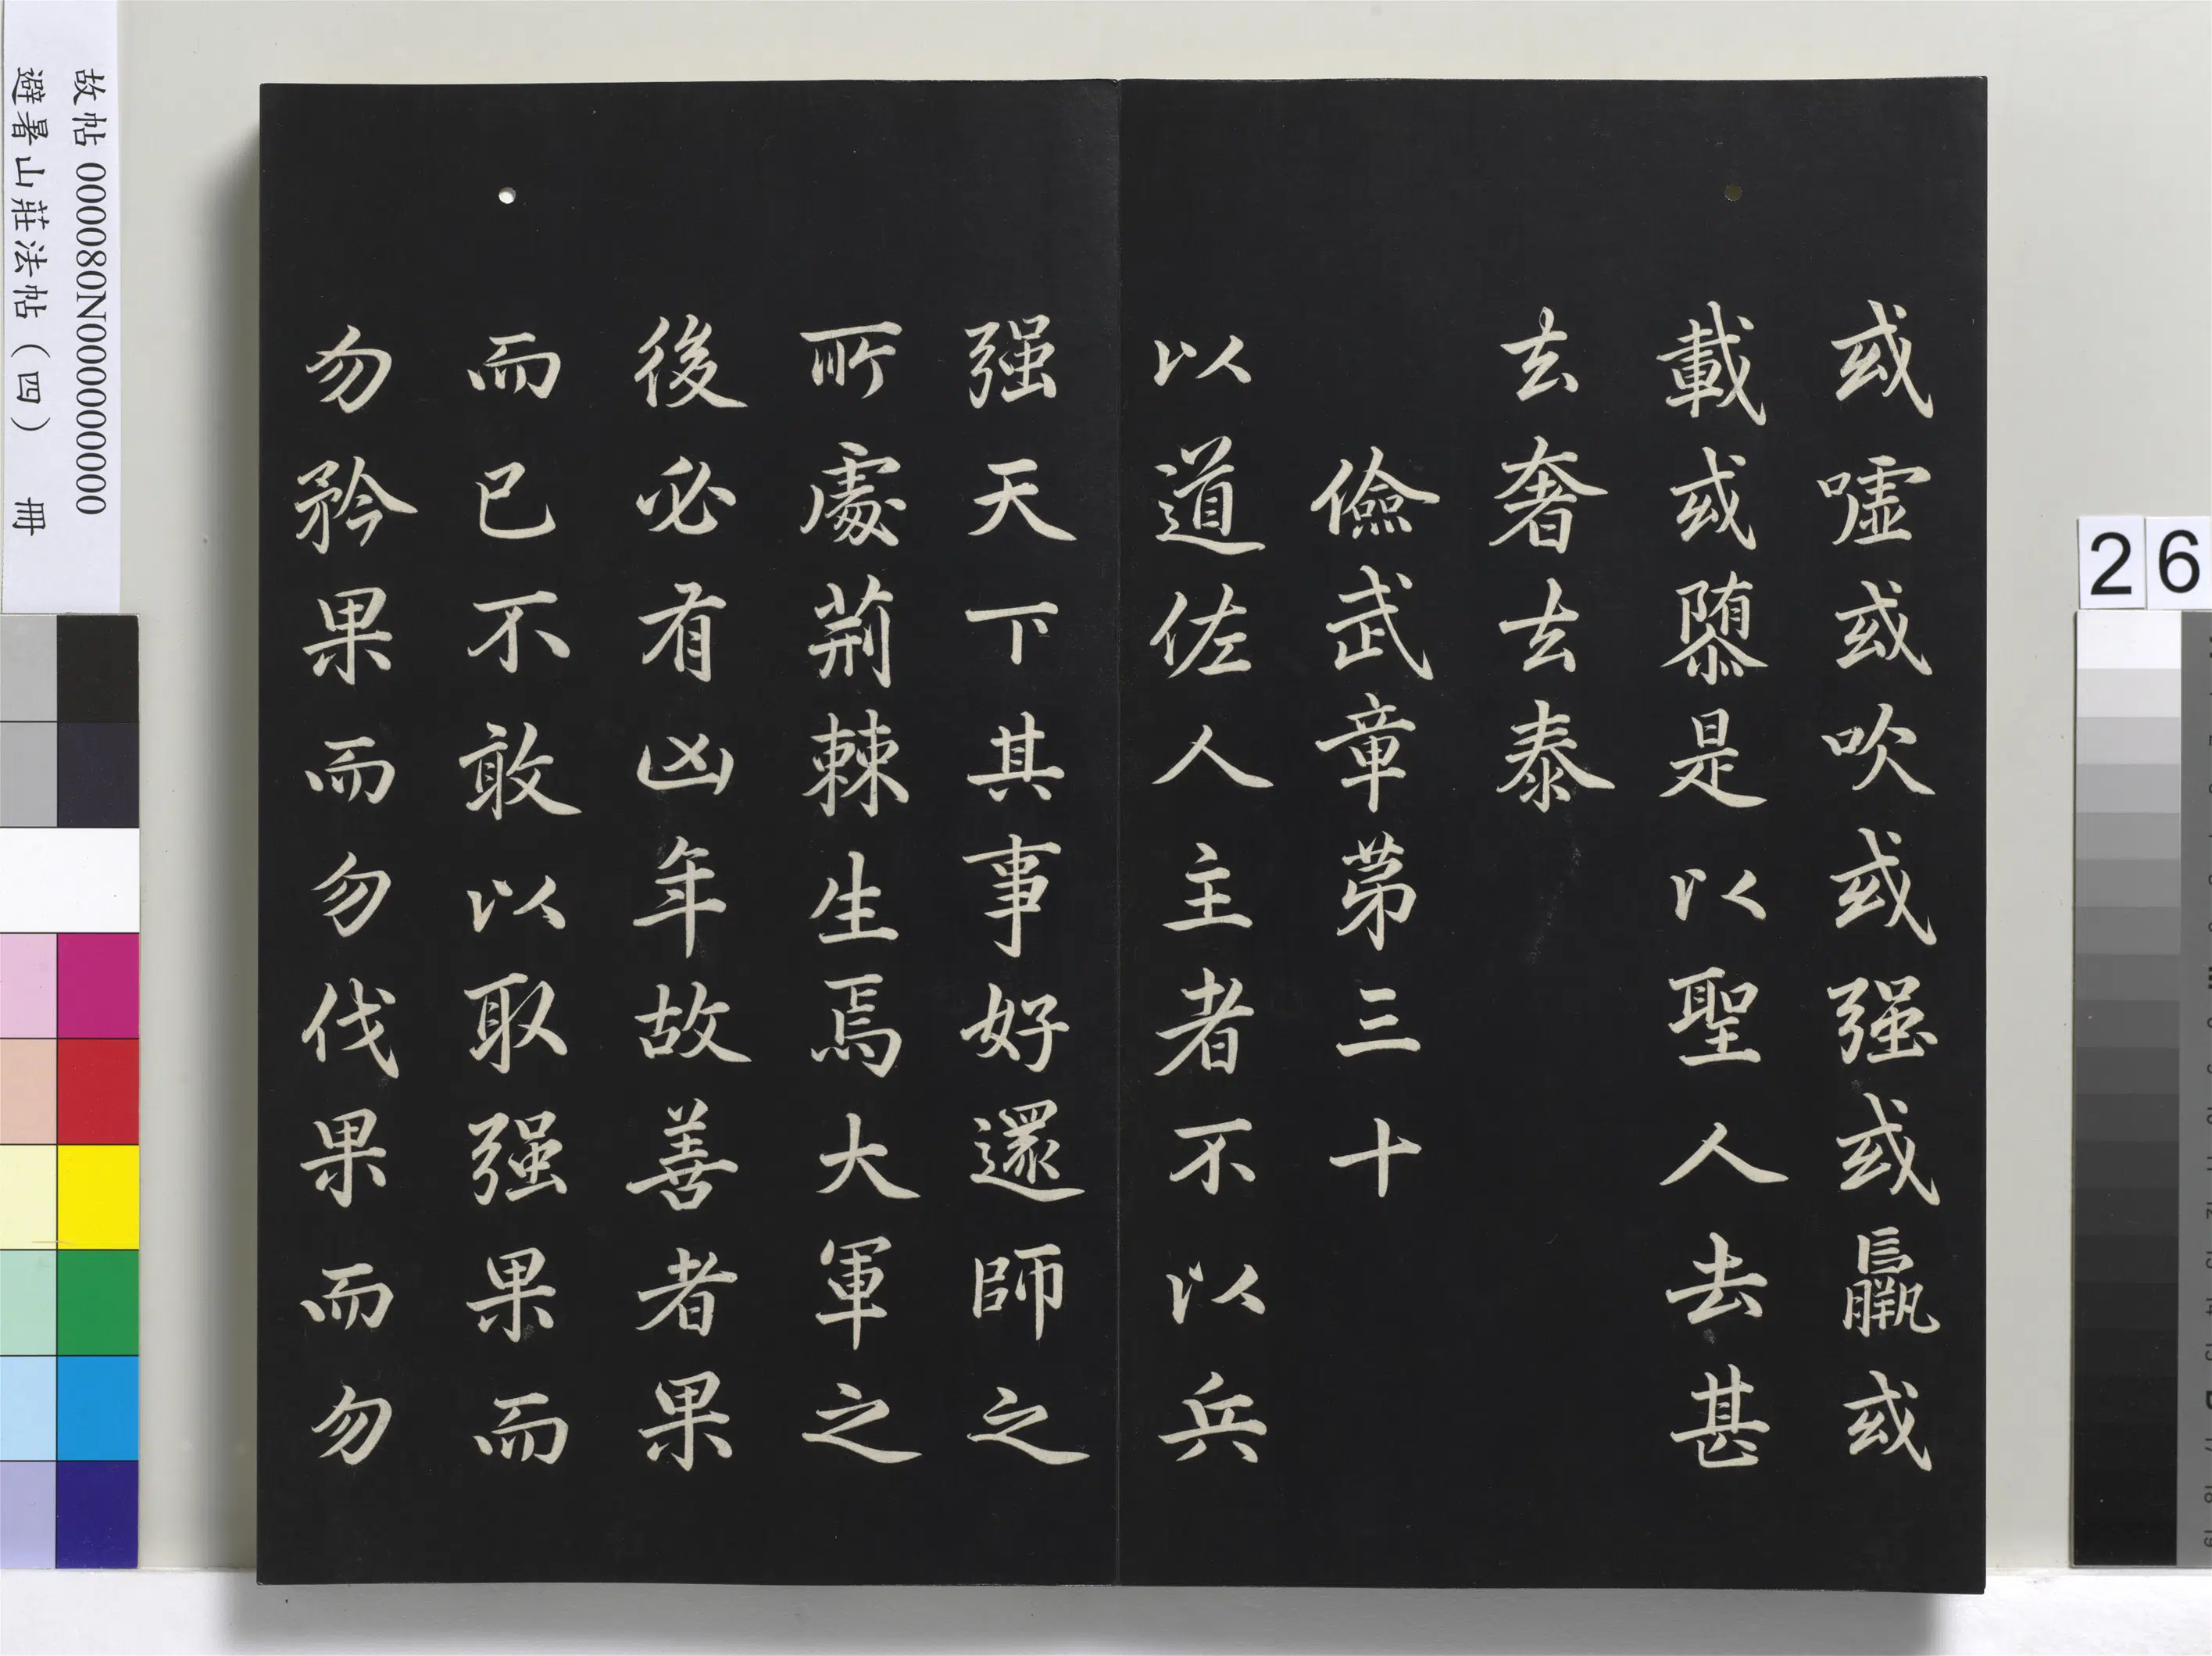 或噓或吹或强或羸或
載或隳是以聖人去甚
去奢去泰
儉武章第三十
以道佐人主者不以兵
强天下其事好還師之
所處荊棘生焉大軍之
後必有凶年故善者果
而已不敢以取强果而
勿矜果而勿伐果而勿
故帖 000080N000000000
避暑山莊法帖(四) 冊
26